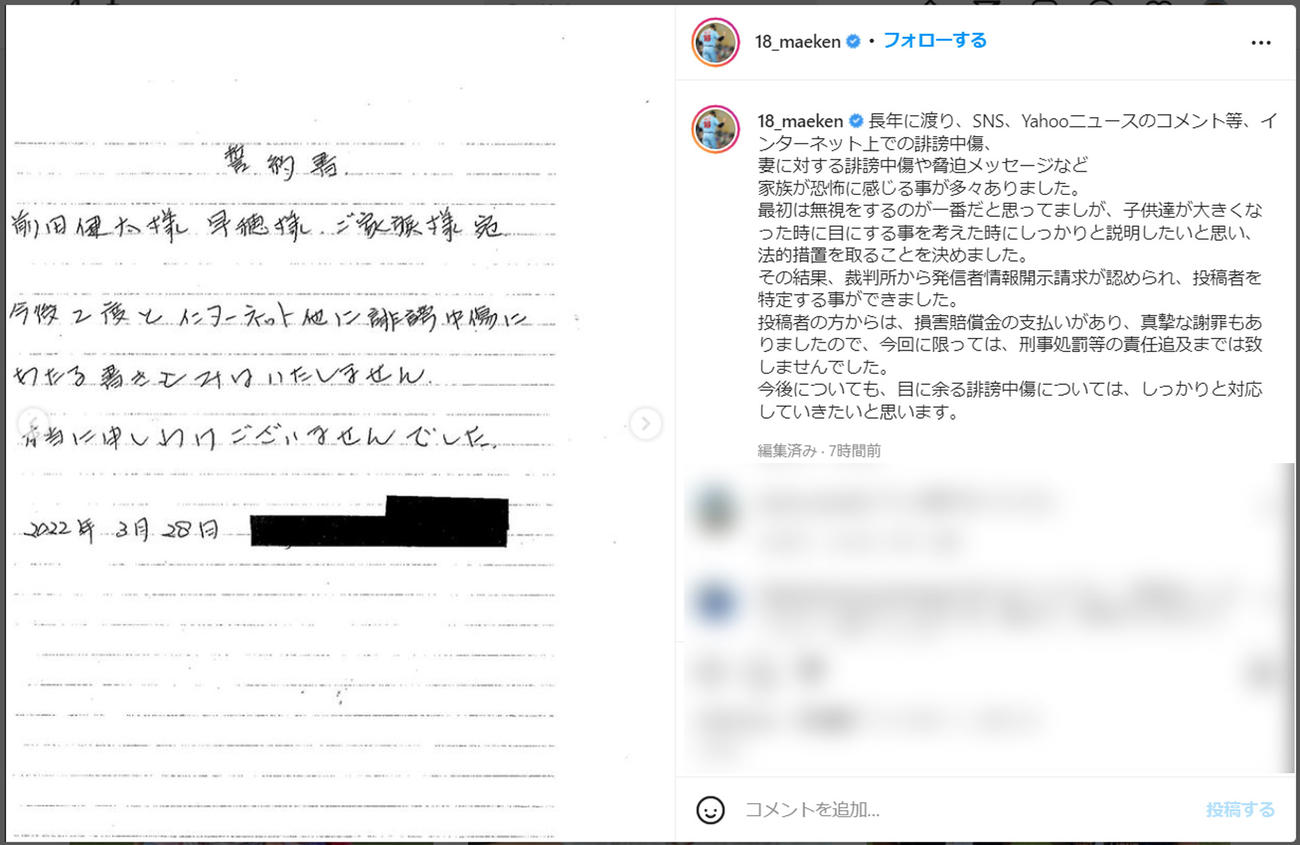 誓約書
前田健太様 早穂様 ご家族様宛
今後2度とインターネット他に誹謗中傷に
わたる書きこみはいたしません.
本当に申しわけございませんでした.
2022年 3月 28日
18_maeken • フォローする
18_maeken 長年に渡り、SNS、Yahooニュースのコメント等、イ
ンターネット上での誹謗中傷、
妻に対する誹謗中傷や脅迫メッセージなど
家族が恐怖に感じる事が多々ありました。
最初は無視をするのが一番だと思ってましが、子供達が大きくな
った時に目にする事を考えた時にしっかりと説明したいと思い、
法的措置を取ることを決めました。
その結果、裁判所から発信者情報開示請求が認められ、投稿者を
特定する事ができました。
投稿者の方からは、損害賠償金の支払いがあり、真摯な謝罪もあ
りましたので、今回に限っては、刑事処罰等の責任追及までは致
しませんでした。
今後についても、目に余る誹謗中傷については、しっかりと対応
していきたいと思います。
編集済み · 7時間前
コメントを追加... 投稿する